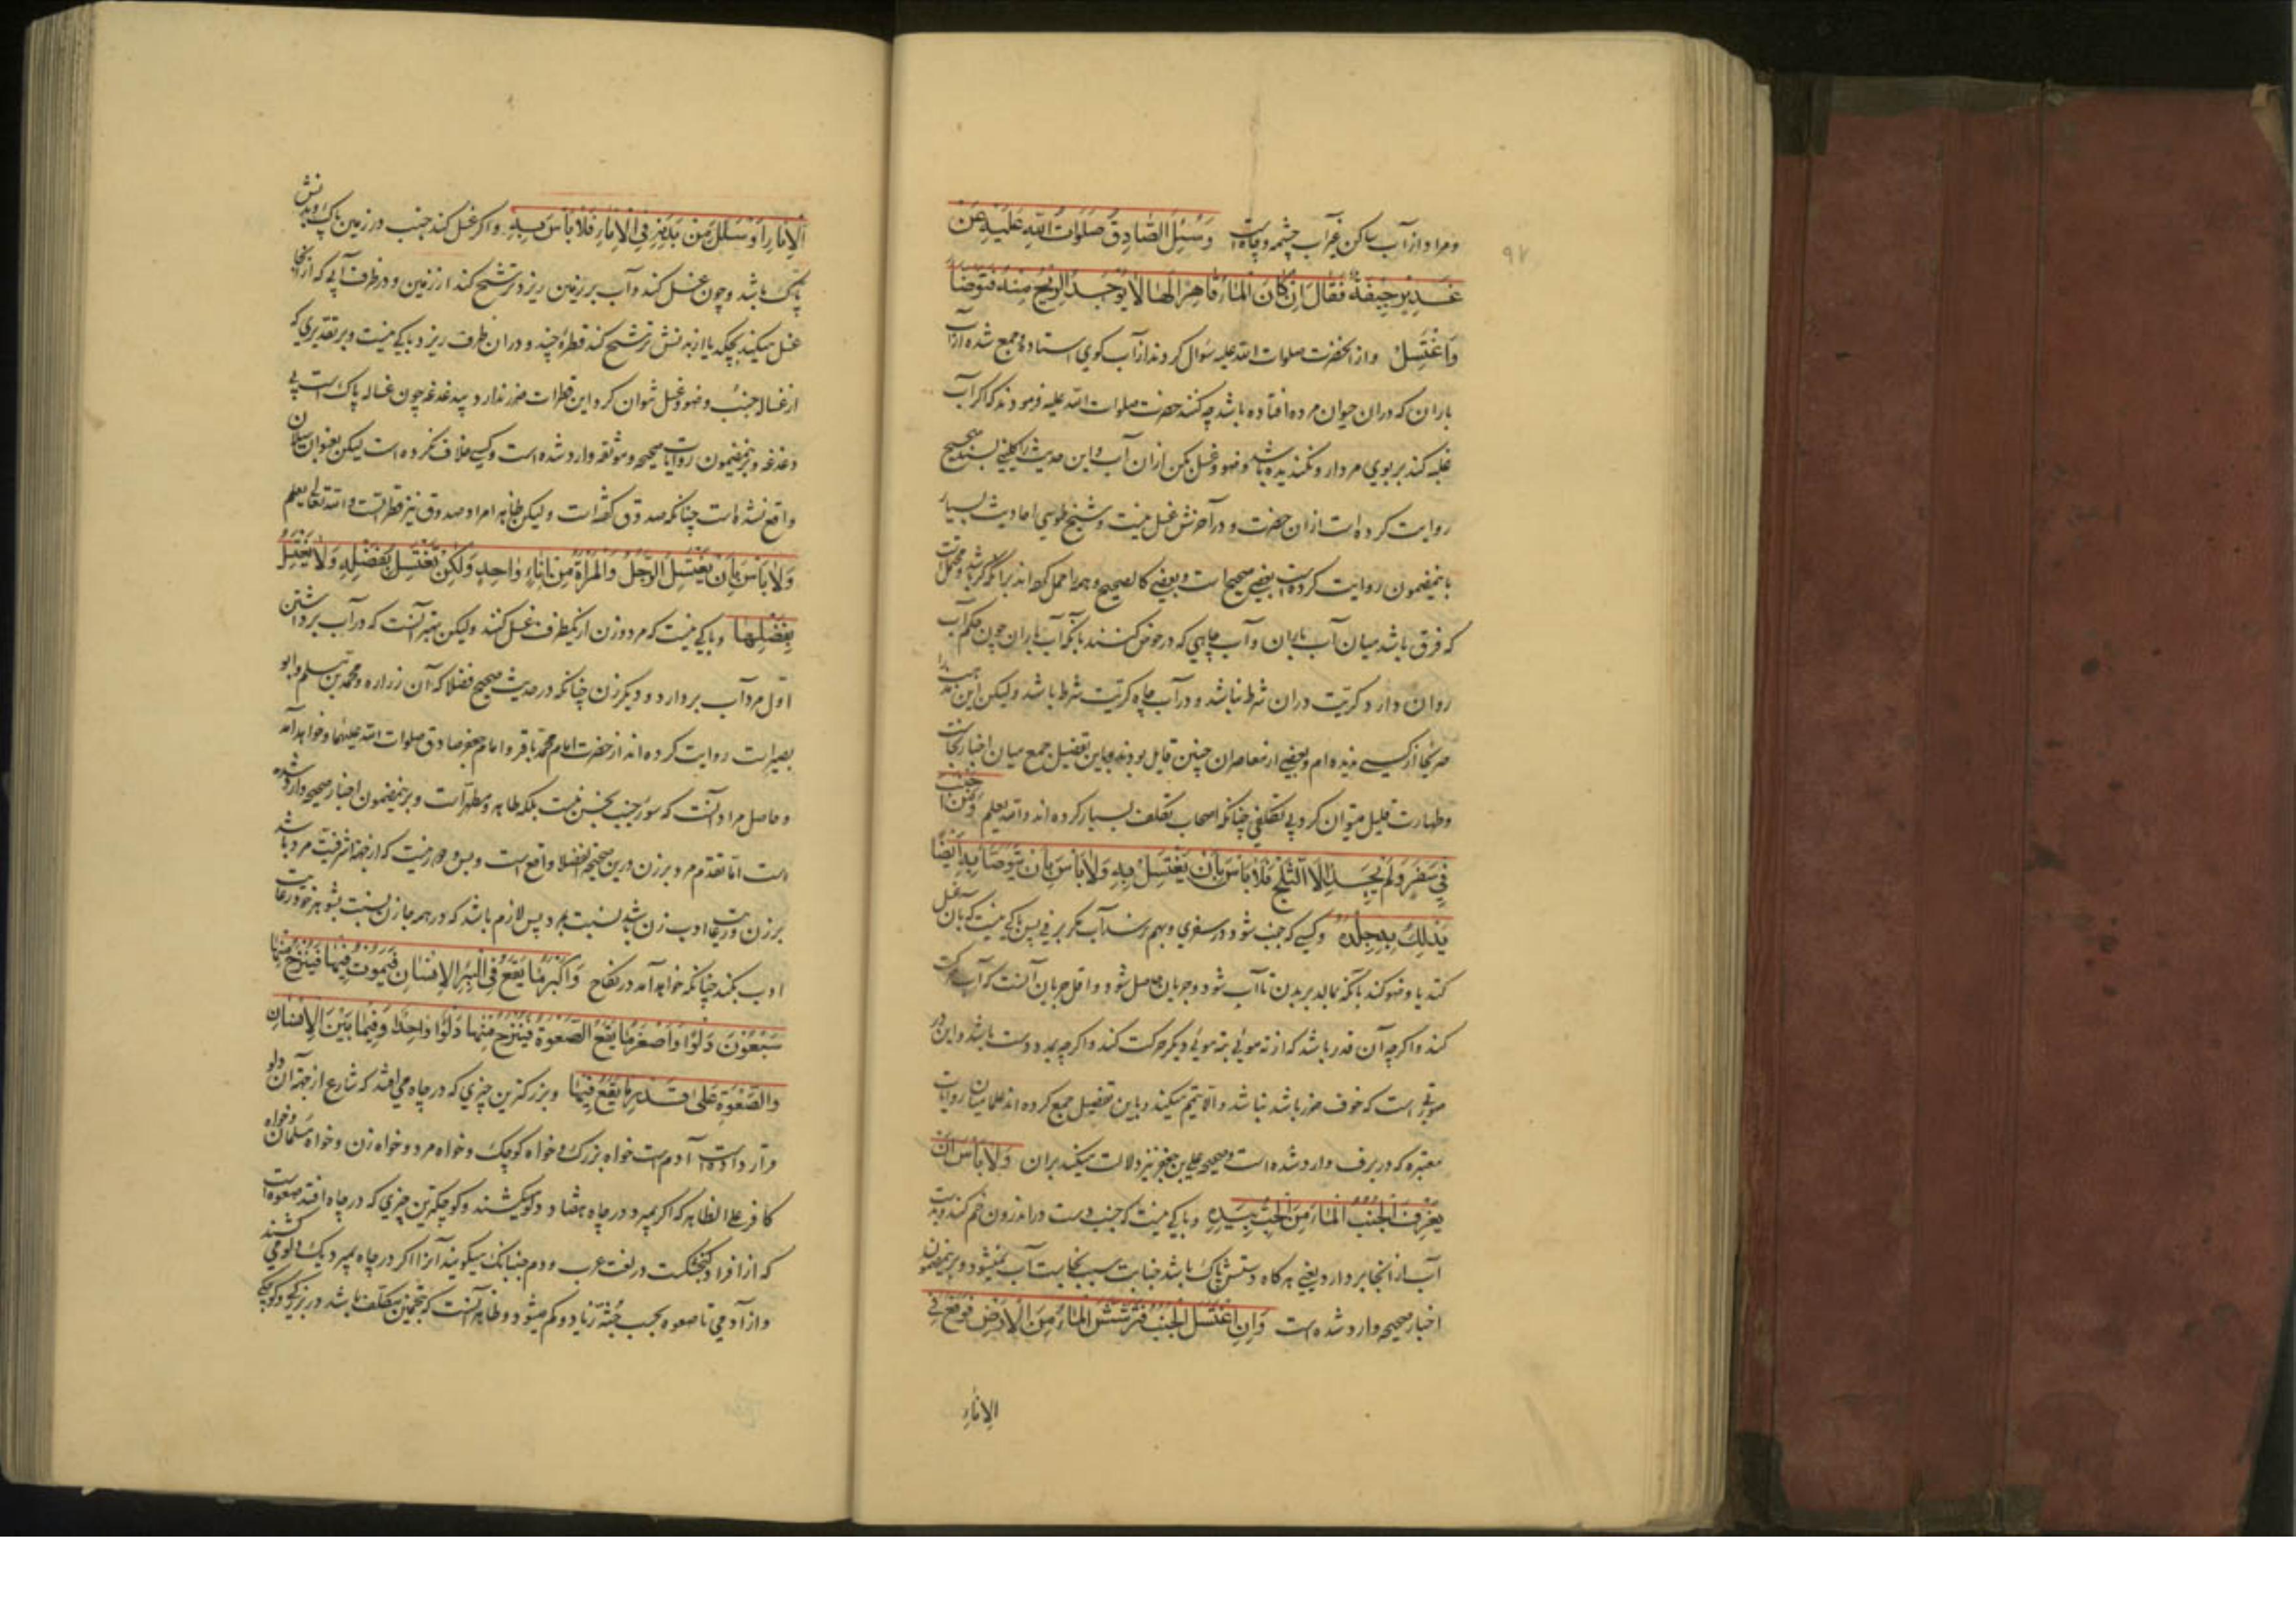 ۹۲
و مراد از آب ساکن غیر آب چشمه و چاهست وَسُئِلَ الصّادِقُ صَلَواتُ اللهِ عَلَیْهِ عَنْ
غَدیرٍ جیفَةٌ فَقالَ اِنْ کانَ الْماءُ قاهِرًا لَها لا یُوجَدُ الرّیحُ مِنْهُ فَتَوَضَّأ
وَاغْتَسِلْ و از آنحضرت صلوات الله علیه سؤال کردند از آب کوی استاده جمع شده از آب
باران که در ان حیوان مرده افتاده باشد چه کنند حضرت صلوات الله علیه فرمودند که اگر آب
غلبه کند بر بوی مردار و نگندیده باشد وضو و غسل بکن ازان آب و این حدیث را کلینی بسند صحیح
روایت کرده است ازان حضرت و در آخرش غسل نیست و شیخ طوسی احادیث بسیار
باینمضمون روایت کرده است بعضی صحیح است و بعضی کالصحیح و همه را حمل کرده اند برآنکه کر باشد و محتملست
که فرق باشد میان آب باران و آب چاهی که در حوض کنند بآنکه آب باران چون حکم آب
روان دارد کریت دران شرط نباشد و در آب چاه کریت شرط باشد ولیکن این مذهب را
صریحا از کسی ندیده ام و بعضی از معاصران چنین قایل بودند و باین تفصیل جمع میان اخبار نجاست
و طهارت قلیل میتوان کرد بی تکلفی چنانکه اصحاب تکلف بسیار کرده اند والله یعلم وَمَنْ اَجْنَبَ
فی سَفَرٍ وَلَمْ یَجِدْ اِلَّا الثَّلْجَ فَلا بَأْسَ بِاَنْ یَغْتَسِلَ بِهِ وَلا بَأْسَ بِاَنْ یَتَوَضَّأَ بِهِ اَیْضًا
یَدْلُکُ بِهِ جِلْدَهُ و کسی که جنب شود در سفری و بهم نرسد آب مگر برفی پس باکی نیست که بان غسل
کند یا وضو کند بآنکه بمالد بر بدن تا آب شود و جریان حاصل شود و اقل جریان آنست که آب حرکت
کند و اگرچه آن قدر باشد که از ته موئی بته موئی دیگر حرکت کند و اگرچه بمدد دست باشد و این در
صورتی است که خوف ضرر باشد نباشد والا تیمم میکند و باین تفصیل جمع کرده اند علما میان روایات
معتبره که در برف وارد شده است و صحیحه علی بن جعفر نیز دلالت میکند بران وَلا بَأْسَ اَنْ
یَغْرِفَ الْجُنُبُ الْماءَ مِنَ الْحُبِّ بِیَدِهِ و باکی نیست که جنب دست در اندرون خم کند و بدست
آب از انجا بردارد یعنی هرگاه دستش پاک باشد جنابت سبب نجاست آب نمیشود و برینمضمون
اخبار صحیحه وارد شده است وَاِنِ اغْتَسَلَ الْجُنُبُ فَتَرَشَّشَ الْماءُ مِنَ الْاَرْضِ فَوَقَعَ فِی
الاناء
الْاِناءِ اَوْ سالَ مِنْ بَدَنِهِ فِی الْاِناءِ فَلا بَأْسَ بِهِ و اگر غسل کند جنب در زمین پاک و بدنش
پاک باشد و چون غسل کند و آب بر زمین ریزد و ترشح کند از زمین و در ظرف آبی که از انجا
غسل میکند بچکد یا از بدنش ترشح کند قطرۀ چند و در ان ظرف ریزد باکی نیست و بر تقدیری که
از غساله جنب وضو و غسل نتوان کرد این قطرات ضرر ندارد و بیدغدغه چون غساله پاک است بی
دغدغه و برینمضمون روایات صحیحه و موثقه وارد شده است و کسی خلاف نکرده است لیکن بعنوان سیلان
واقع نشده است چنانکه صدوق گفته است ولیکن ظاهرا مراد صدوق نیز قطراتست والله تعالی یعلم
وَلا بَأْسَ بِاَنْ یَغْتَسِلَ الرَّجُلُ وَالْمَرْأَةُ مِنْ اِناءٍ واحِدٍ وَلکِنْ تَغْتَسِلُ بِفَضْلِهِ وَلا یَغْتَسِلُ
بِفَضْلِها و باکی نیست که مرد و زن از یکظرف غسل کنند ولیکن بهتر آنست که در آب برداشتن
اول مرد آب بردارد و دیگر زن چنانکه در حدیث صحیح فضلا که آن زراره و محمد بن مسلم و ابو
بصیر است روایت کرده اند از حضرت امام محمد باقر و امام جعفر صادق صلوات الله علیهما و خواهد آمد
و حاصل مراد آنست که سور جنب نجس نیست بلکه طاهر و مطهر است و برینمضمون اخبار صحیحه وارد شده
است اما تقدم مرد بر زن درین صحیحه فضلا واقع است و بس و دور نیست که از جهة اشرفیت مرد باشد
بر زن و رعایت ادب زن باشد نسبت بمرد پس لازم باشد که در همه جا زن نسبت بشوهر خود رعایت
ادب بکند چنانکه خواهد آمد در نکاح وَاَکْبَرُ ما یَقَعُ فِی الْبِئْرِ الْاِنْسانُ فَیَمُوتُ فیها فَیُنْزَحُ مِنْها
سَبْعُونَ دَلْوًا وَاَصْغَرُ ما یَقَعُ الصَّعْوَةُ فَیُنْزَحُ مِنْها دَلْوًا واحِدًا وَفیما بَیْنَ الْاِنْسانِ
وَالصَّعْوَةِ عَلی قَدْرِ ما یَقَعُ فیها و بزرگترین چیزی که در چاه می افتد که شارع از جهة آن دلو
قرار داده است آدم است خواه بزرگ و خواه کوچک و خواه مرد و خواه زن و خواه مسلمان و خواه
کافر علی الظاهر که اگر بمیرد در چاه هفتاد دلو میکشند و کوچکترین چیزی که در چاه افتد صعوه است
که از افراد گنجشکست در لغت عرب و دم جنبانک میگویند آنرا اگر در چاه بمیرد یک دلو می کشند
و از آدمی تا صعوه بحسب جثه زیاد و کم میشود و ظاهر آنست که بتخمین مکلف باشد در بزرگی و کوچکی